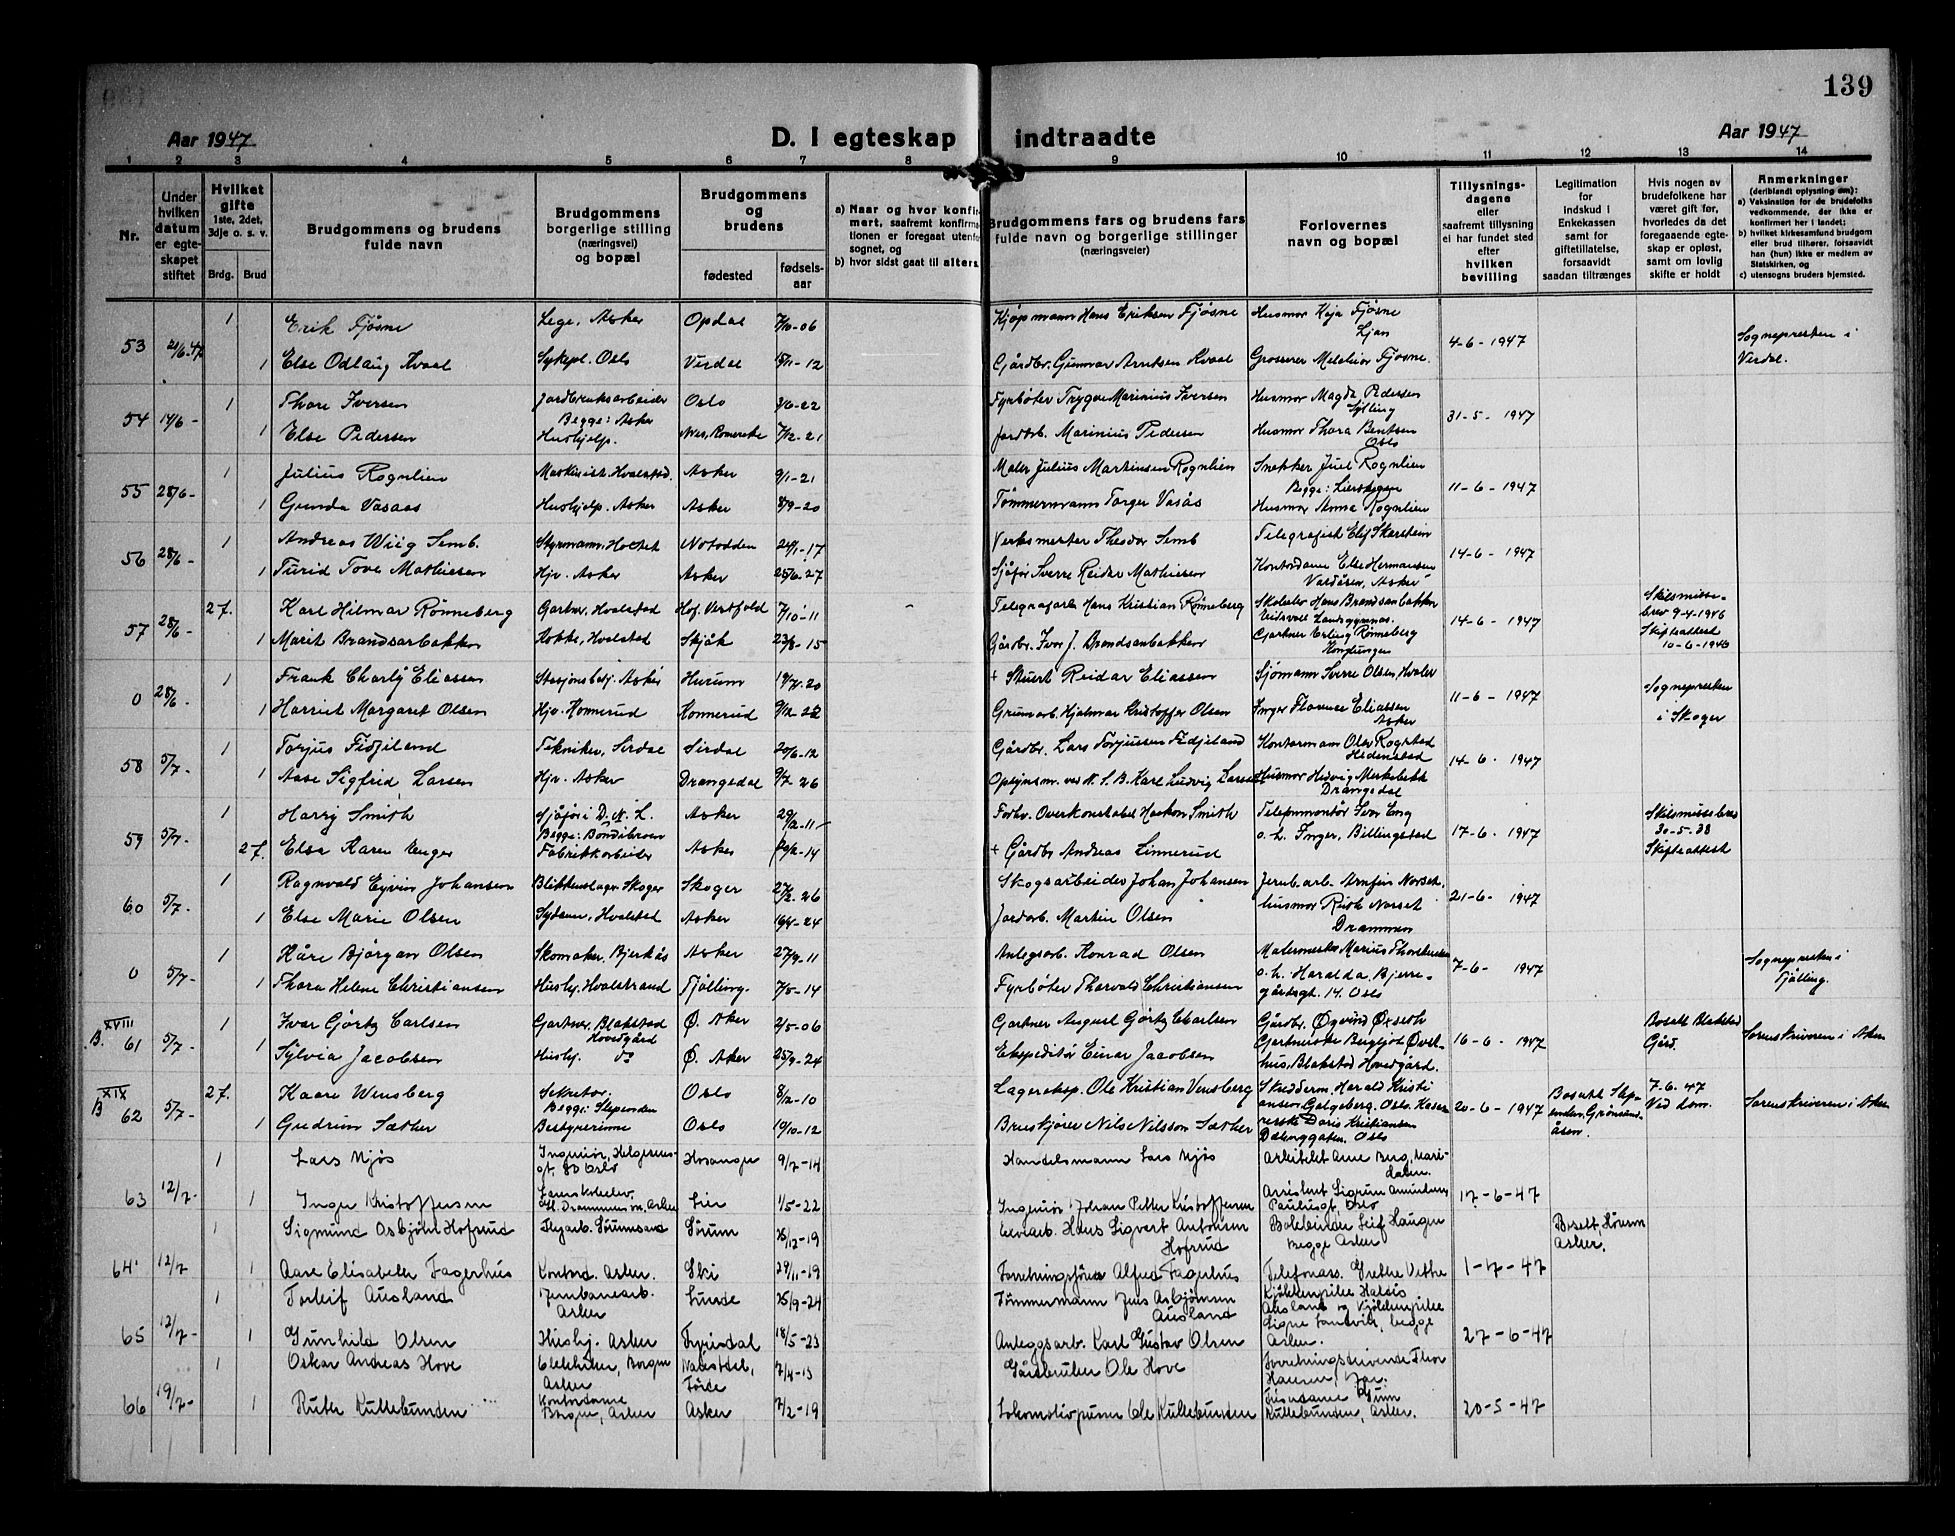 139
Aar 1947
D. I egteskap indtraadte
Aar 1947
1 2 3 4 5 6 7 8 9 10 11 12 13 14
Nr.
Under hvilken datum er egteskapet stiftet
Hvilket gifte 1ste, 2det, 3dje o. s. v.
Brdg. Brud
Brudgommens og brudens fulde navn
Brudgommens borgerlige stilling (næringsvei) og bopæl
Brudgommens og brudens
fødested
fødselsaar
a) Naar og hvor konfirmert, saafremt konfirmationen er foregaat utenfor sognet, og
b) hvor sidst gaat til alters
Brudgommens fars og brudens fars fulde navn og borgerlige stillinger (næringsveier)
Forlovernes navn og bopæl
Tillysningsdagene eller saafremt tillysning ei har fundet sted efter hvilken bevilling
Legitimation for Indskud i Enkekassen samt for giftetillatelse, forsaavidt saadan tiltrænges
Hvis nogen av brudefolkene har været gift før, hvorledes da det foregaaende egteskap er opløst, samt om lovlig skifte er holdt
Anmerkninger (deriblandt oplysning om):
a) Vaksination for de brudefolks vedkommende, der ikke er konfirmert her i landet;
b) hvilket kirkesamfund brudgom eller brud tilhører, forsaavidt han (hun) ikke er medlem av Statskirken, og
c) utensogns bruders hjemsted.
53 21/6-47 1 Erik Fjøsne Lege, Asker Opdal 7/10-06 Kjøpmann Hans Eriksen Fjøsne Husmor Kaja Fjøsne Ljan 4-6-1947 Sognepresten i Verdal.
1 Else Odlaug Kvaal Sykepl. Oslo Verdal 15/11-12 Gårdbr. Gunnar Arntsen Kvaal Grosserer Melchior Fjøsne.
54 14/6- 1 Thore Iversen Jordbruksarbeider Oslo 3/6-22 Fyrbøter Trygve Marinius Iversen Husmor Magda Pedersen Sylling 31-5-1947
Begge: Asker
1 Else Pedersen Hushjelp. Nes, Romerike 7/12-21 Jordbr. Marinius Pedersen Husmor Thora Bentsen Oslo
55 28/6- 1 Julius Rognlien Maskinist. Hvalstad. Asker 9/1-21 Maler Julius Martinsen Rognlien Snekker Juel Rognlien 11-6-1947
Begge: Lierskogen
1 Gunda Vasaas Hushjelp. Asker Asker 8/9-20 Tømmermann Torger Vasås Husmor Anna Rognlien
56 28/6- 1 Andreas Wiig Semb. Styrmann, Holtet Notodden 24/1-17 Verksmester Theodor Semb Telegrafist Elif Skarstein 14-6-1947
1 Turid Tove Mathiesen Hjv. Asker Asker 25/6-27 Sjåfør Sverre Reidar Mathiesen Kontordame Else Hermansen Vardåsen, Asker
57 28/6- 2 f. Karl Hilmar Rønneberg Gartner, Hvalstad Hof, Vestfold 7/10-11 Telegrafarb. Hans Kristian Rønneberg Skoleelev Hans Brandsarbakken Eidsvoll Landsgymnas. 14-6-1947 Skilsmissebrev 9-4-1946
1 Marit Brandsarbakken Kokke, Hvalstad Skjåk 23/8-15 Gårdbr. Ivar J. Brandsarbakken Gartner Erling Rønneberg Konglungen Skifteattest 10-6-1946
0 28/6- 1 Frank Charly Eliassen Stasjonsbetj. Asker Hurum 19/4-20 + Stuert Reidar Eliassen Sjømann Sverre Olsen, Hvaler 11-6-1947 Sognepresten i Skoger
1 Harriet Margaret Olsen Hjv. Konnerud Konnerud 9/12-28 Grunnarb. Hjalmar Kristoffer Olsen Inger Florence Eliassen Asker
58 5/7. 1 Torjus Fidjeland Tekniker, Sirdal Sirdal 20/6-12 Gårdbr. Lars Torjussen Fidjeland Kontormann Olav Rogstad Hedenstad 14-6-1947
1 Aase Sigfrid Larsen Hjv. Asker Drangedal 9/7-26 Opsynsm. ved N. S. B. Karl Ludvig Larsen Husmor Hedvig Merkebekk Drangedal
59 5/7. 1 Harry Smith Sjåfør i D. N. L. Asker 29/12-11 Forhv. Overkonstabel Haakon Smith Telefonmontør Ivar Eng 17-6-1947 Skilsmissebrev 30-5-38
Begge: Bondibroen
2 f. Else Karen Unger Fabrikkarbeider Asker 20/2-14 + Gårdbr. Andreas Linnerud o. h. Inger, Billingstad Skifteattest
60 5/7. 1 Ragnvald Eyvin Johansen Blikkenslager. Skoger Skoger 27/2-26 Skogsarbeider Johan Johansen Jernb. arb. Arnfin Norset, 21-6-1947
1 Else Marie Olsen Sydame, Hvalstad Asker 16/4-24 Jordarb. Martin Olsen husmor Ruth Norset Drammen
0 5/7- 1 Kåre Bjørgan Olsen Skomaker, Bjerkås Asker 27/9-11 Anlegsarb. Konrad Olsen Malermester Marius Thorkildsen 7-6-1947 Sognepresten i Tjølling.
1 Thora Helene Christiansen Hushj. Hvalstrand Tjølling. 7/5-14 Fyrbøter Thorvald Christiansen o. h. Haralda, Bjerregårdsgt. 14. Oslo
B. XVIII 61 5/7- 1 Ivar Gørtz Carlsen Gartner, Blakstad Hovedgård Ø. Aker 2/5-06 Gartner August Gørtz Carlsen Gårdbr. Øyvind Øxseth 16-6-1947 Bosatt Blakstad Gård. Sorenskriveren i Asker
1 Sylvia Jacobsen Hushj. do Ø. Aker 25/9-24 Ekspeditør Einar Jacobsen Gartnerske Bergljot Øverhus, Blakstad Hovedgård.
B XIX 62 5/7- 2 f. Kaare Wensberg Sekretær. Oslo 8/12-10 Lagereksp. Ole Kristian Wensberg Skredderm. Harald Kristiansen, Galgeberg. Oslo. 20-6-1947 Bosatt Slependen, Grønsundåsen. 7-6-47 Ved dom. Sorenskriveren i Asker
Begge: Slependen
1 Gudrun Sæther Bestyrerinne Oslo 19/10-12 Bruskjører Nils Nilsson Sæther Doris Kristiansen Dælenggaten. Oslo
63 12/7- 1 Lars Njøs Ingeniør, Helgesensgt. 80 Oslo Hosanger 9/7-14 Handelsmann Lars Njøs Arkitekt Arne Berg, Maridalen. 17-6-47
1 Inger Kristoffersen Drammensv., Asker Lier 1/5-22 Ingeniør Johan Petter Kristoffersen Assistent Sigrun Amundsen Paulusgt. Oslo
64 12/7 1 Sigmund Asbjørn Hofsrud Flyarb. Sørumsand Sørum 25/12-19 Elvearb. Hans Sigvart Antonsen Hofsrud Bokbinder Leif Haugen begge Asker 1-7-47 Bosatt, Hönsm Asker.
1 Aase Elisabeth Fagerhus Kontord. Asker. Ski 29/11-19 Forretningsfører Alfred Fagerhus Telefonass. Grethe Vethe
65 12/7- 1 Torleif Ausland Jernbanearb. Asker Lunde 25/9-24 Tømmermann Jens Asbjørnsen Ausland Kjøkkenpike Halsis Ausland og Kjøkkenpike Signe Sandvik, begge Asker. 27-6-47
1 Gunhild Olsen Hushj. Asker Fyresdal 18/5-23 Anleggsarb. Karl Gustav Olsen
66 19/7- 1 Oskar Andreas Hove Elektriker, Borgen Asker Naustdal, Førde 7/4-13 Gårdbruker Ole Hove Forretningsdrivende Thor Hansen, Jar. 20-5-47
1 Ruth Kullebunden Kontordame Borgen, Asker Asker 2/2-19 Lokomotivpusser Ole Kullebunden Frisørdame Gunn Kullebunden, Asker.